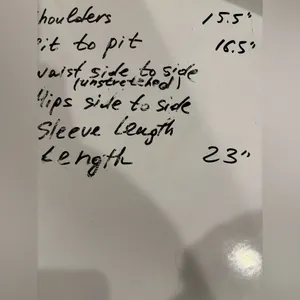 houlders 15.5"
it to pit 16.5"
waist side to side
(unstretched)
Hips side to side
Sleeve Length
Length 23"